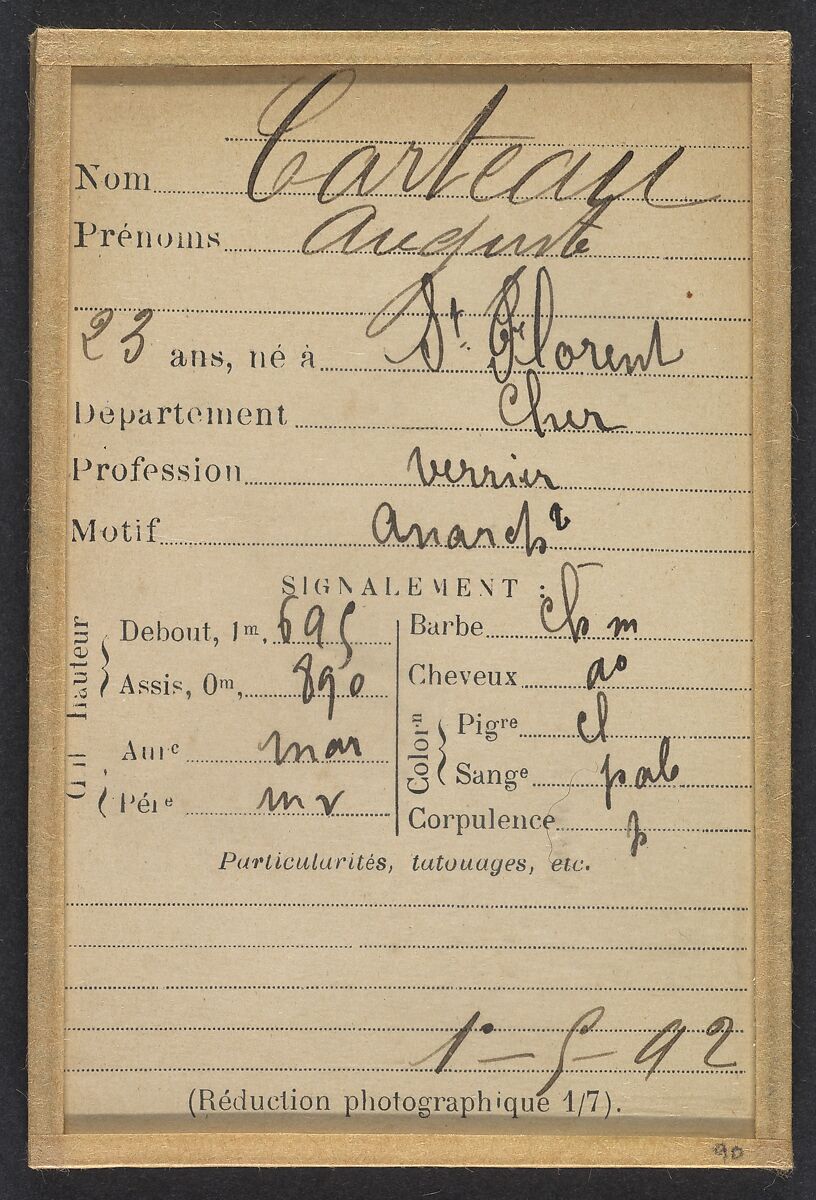 Nom Carteau
Prénoms Auguste
23 ans, né à St Florent
Département Cher
Profession verrier
Motif Anarch
SIGNALEMENT :
hauteur
Debout, 1m, 695
Assis, 0m, 890
Œil
Aurc mar
Pére mv
Barbe ch m
Cheveux do
Colorn
Pigre cl
Sange
Corpulence p
Particularités, tatouages, etc.
1-5-92
(Réduction photographique 1/7).
90